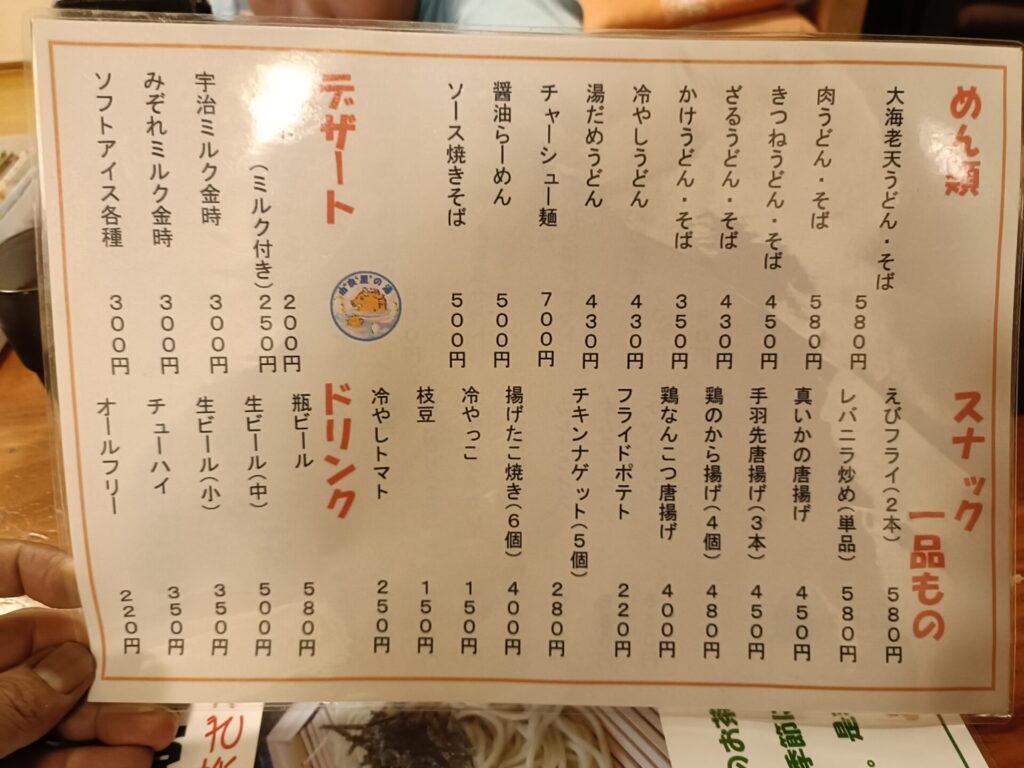 めん類
大海老天うどん・そば 580円
肉うどん・そば 580円
きつねうどん・そば 450円
ざるうどん・そば 430円
かけうどん・そば 350円
冷やしうどん 430円
湯だめうどん 430円
チャーシュー麺 700円
醤油らーめん 500円
ソース焼きそば 500円
デザート
200円
(ミルク付き) 250円
宇治ミルク金時 300円
みぞれミルク金時 300円
ソフトアイス各種 300円
スナック
一品もの
えびフライ(2本) 580円
レバニラ炒め(単品) 580円
真いかの唐揚げ 450円
手羽先唐揚げ(3本) 450円
鶏のから揚げ(4個) 480円
鶏なんこつ唐揚げ 400円
フライドポテト 220円
チキンナゲット(5個) 280円
揚げたこ焼き(6個) 400円
冷やっこ 150円
枝豆 150円
冷やしトマト 250円
ドリンク
瓶ビール 580円
生ビール(中) 500円
生ビール(小) 350円
チューハイ 350円
オールフリー 220円
のお茶
季節に
是